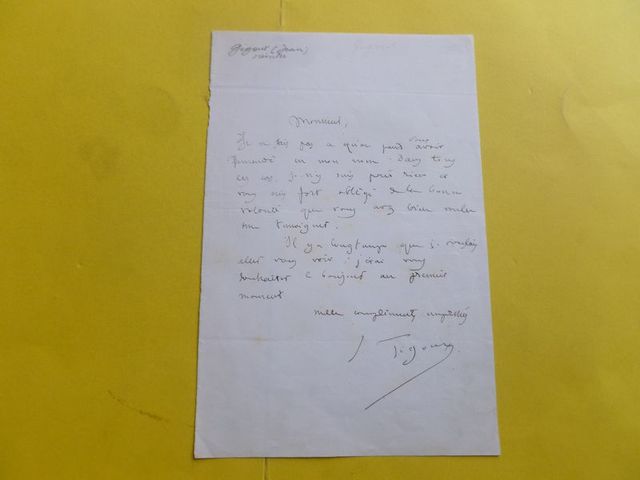 (Jean)
peintre
Monsieur,
Je ne sais pas a qu'on peut vous avoir
demandé en mon nom. Dans tous
les cas, je n'y suis pour rien et
vous suis fort obligé de la bonne
volonté que vous avez bien voulu
me temoigner.
Il y a longtemps que je voulais
aller vous voir ; j'irai vous
souhaiter le bonjour au premier
moment
mille compliments empressés
J